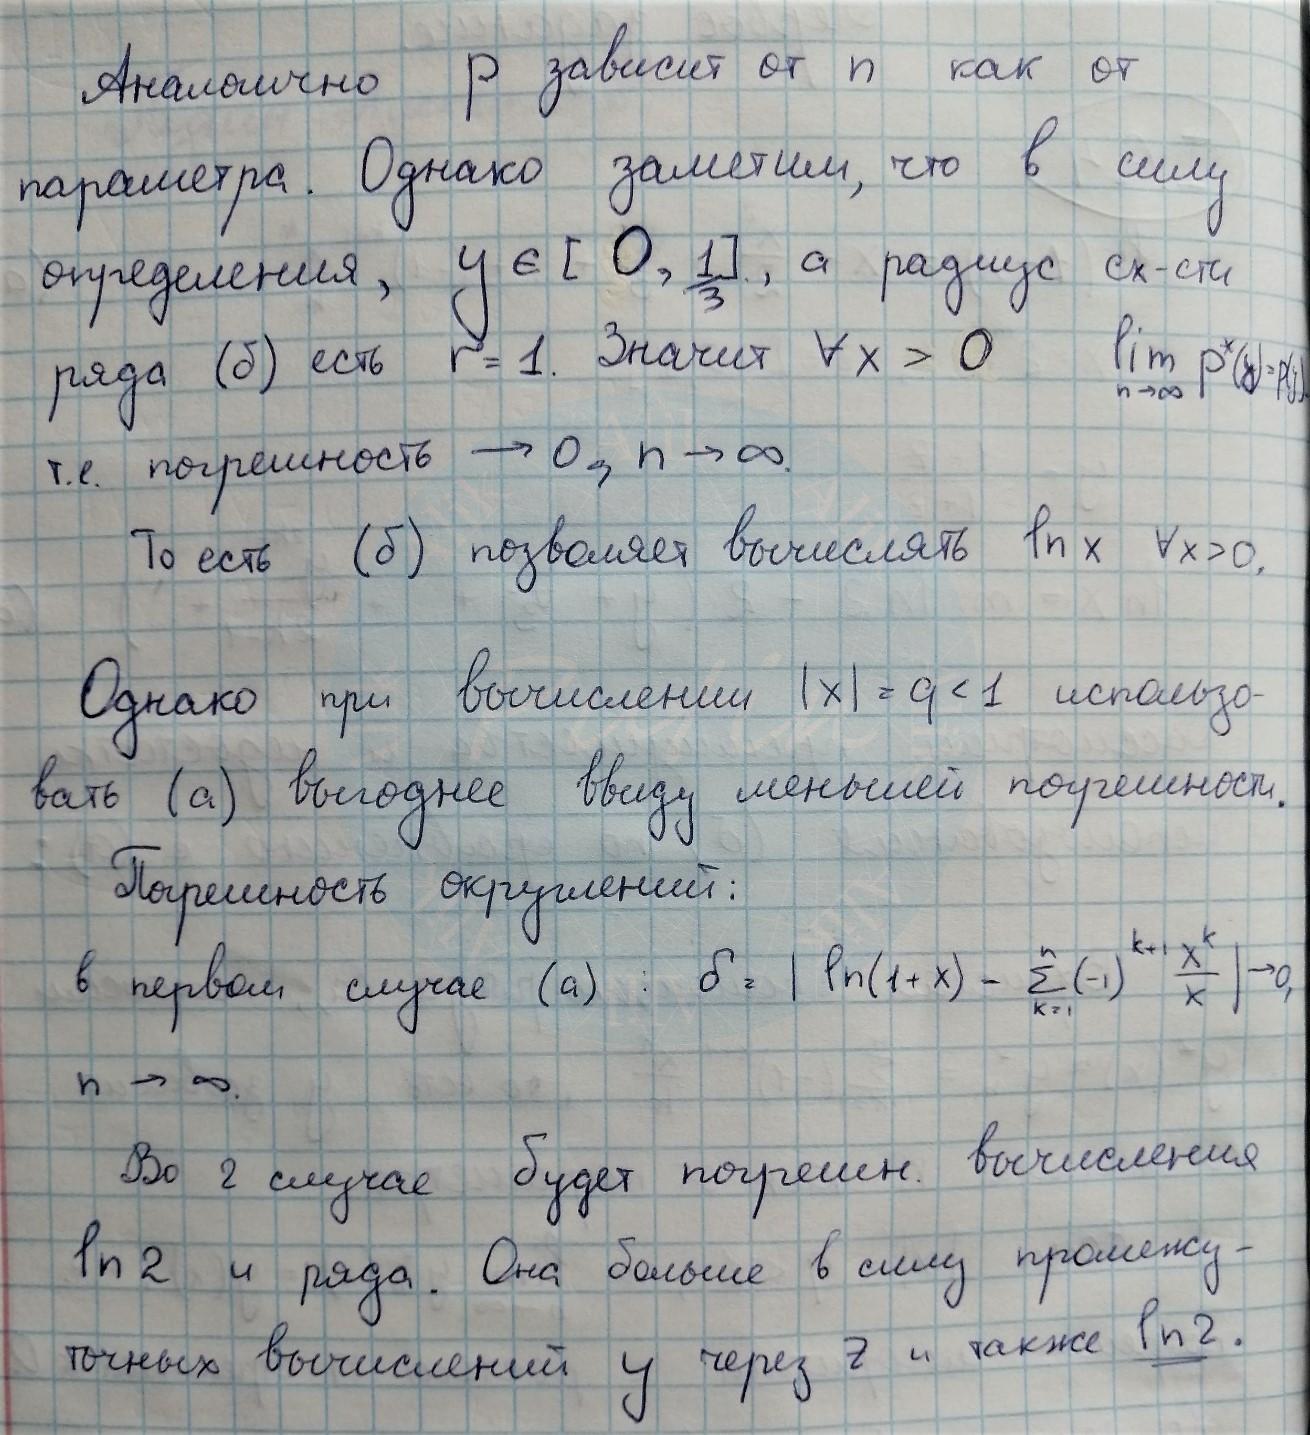 Аналогично p зависит от n как от
параметра. Однако заметим, что в силу
определения, y ∈ [0, 1/3], а радиус сх-сти
ряда (б) есть r = 1. Значит ∀x > 0 lim n→∞ p*(y)=p(y),
т.е. погрешность → 0, n → ∞.
То есть (б) позволяет вычислять ln x ∀x>0.
Однако при вычислении |x| = q < 1 использо-
вать (а) выгоднее ввиду меньшей погрешности.
Погрешность округлений:
в первом случае (а) : δ = | ln(1+x) - Σ_{k=1}^{n} (-1)^{k+1} x^k/x | → 0,
n → ∞.
Во 2 случае будет погрешн. вычисления
ln 2 и ряда. Она больше в силу промежу-
точных вычислений y через z и также ln 2.